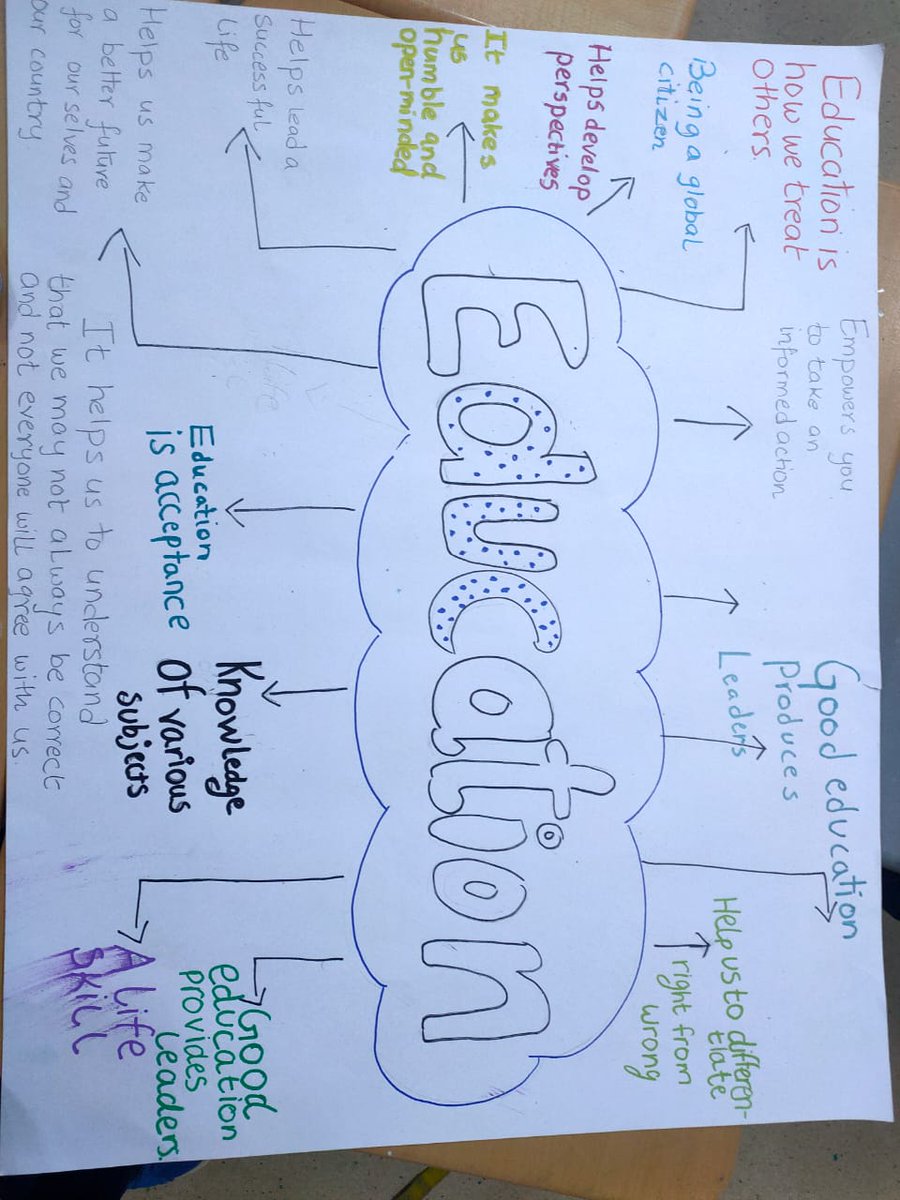 Education is
how we treat
others.
Being a global
citizen
Helps develop
perspectives
It makes
us
humble and
open-minded
Helps lead a
successful
Life
Helps us make
a better future
for our selves and
our country.
Empowers you
to take an
informed action
Good education
produces
Leaders
Help us to differen-
tiate
right from
wrong
Education
Education
is acceptance
Knowledge
Of various
subjects
It helps us to understand
that we may not always be correct
and not everyone will agree with us.
Good
education
provides
leaders.
A Life
Skill